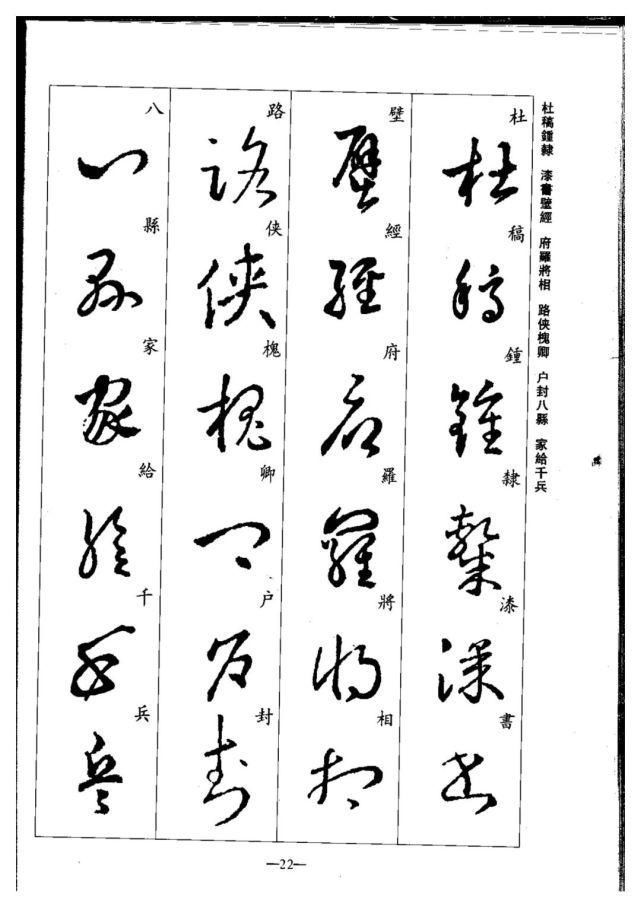 杜稿鍾隸 漆書壁經 府羅將相 路俠槐卿 户封八縣 家給千兵
杜稿鍾隸漆書
壁經府羅將相
路俠槐卿户封
八縣家給千兵
—22—